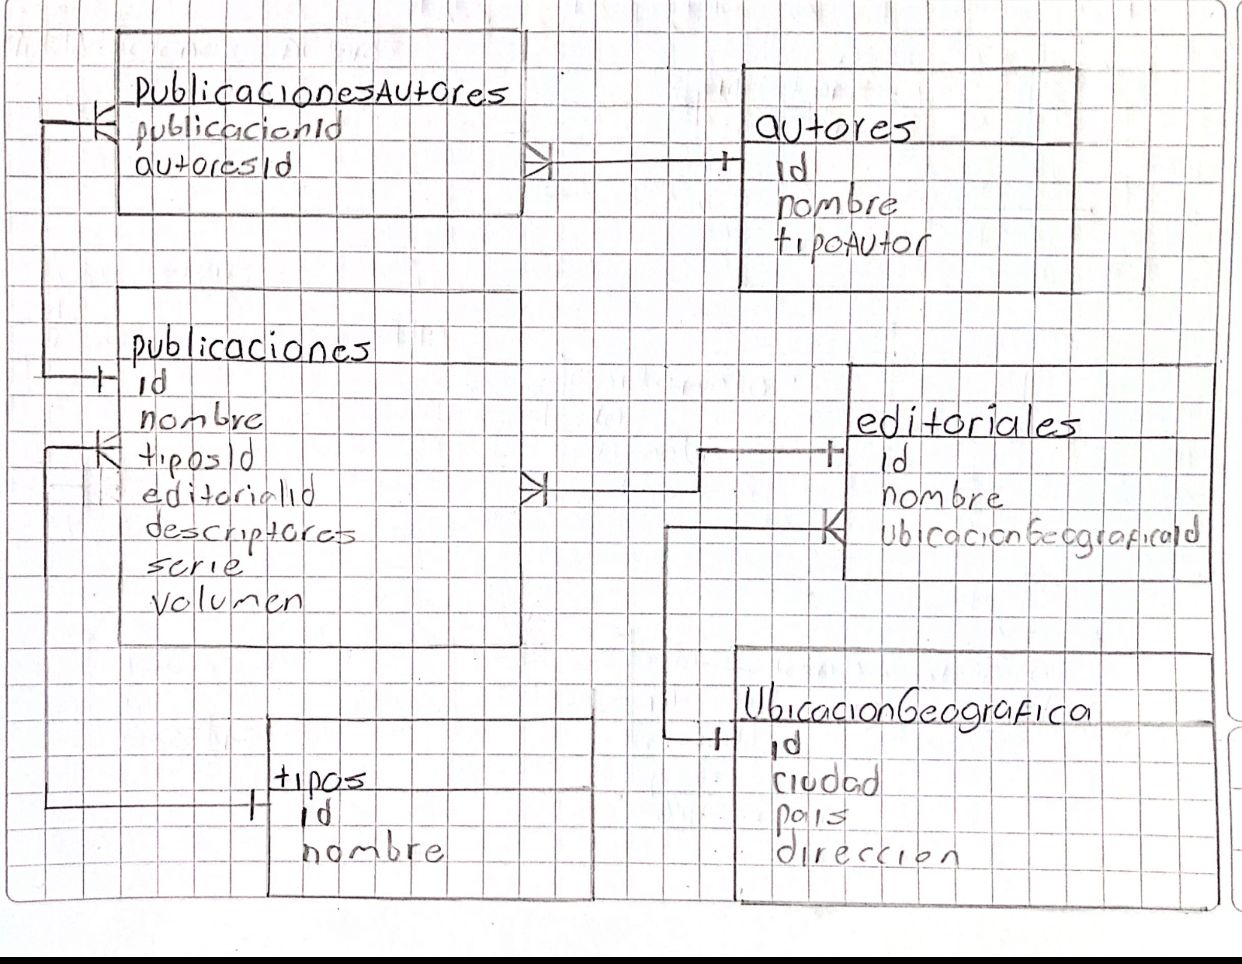 publicacionesAutores
publicacionId
autoresId
autores
id
nombre
tipoAutor
publicaciones
id
nombre
tiposId
editorialId
descriptores
serie
volumen
editoriales
id
nombre
UbicacionGeograficaId
UbicacionGeografica
id
ciudad
pais
direccion
tipos
id
nombre